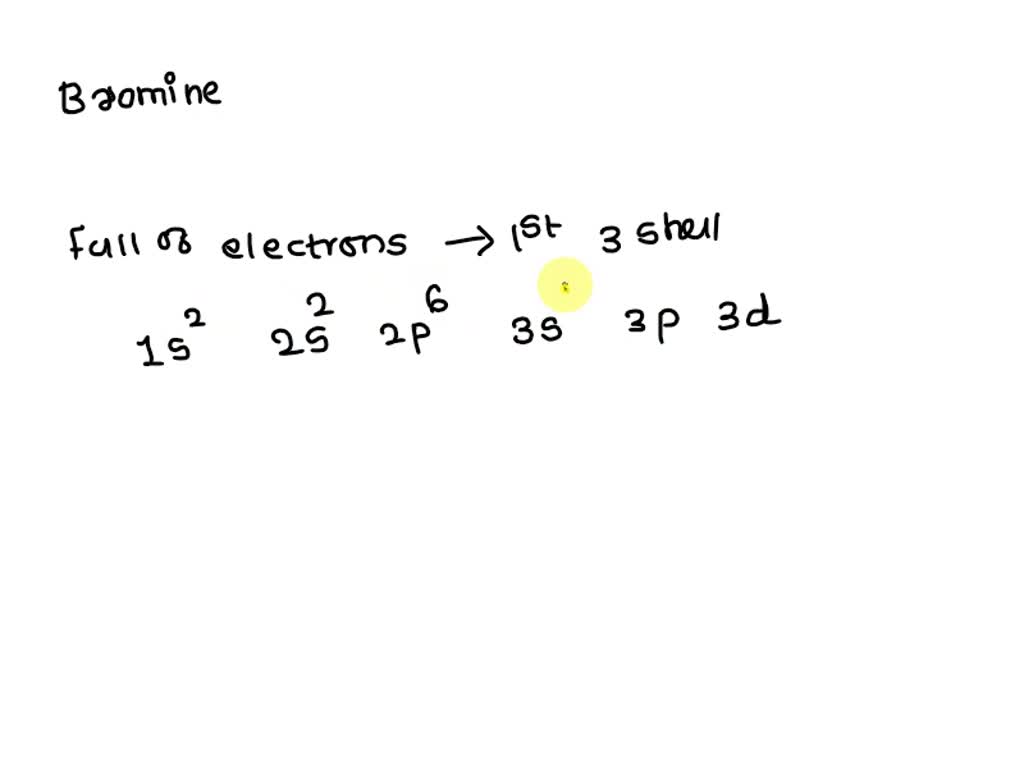 Bromine
full of electrons → 1st 3 shell
1s² 2s² 2p⁶ 3s 3p 3d